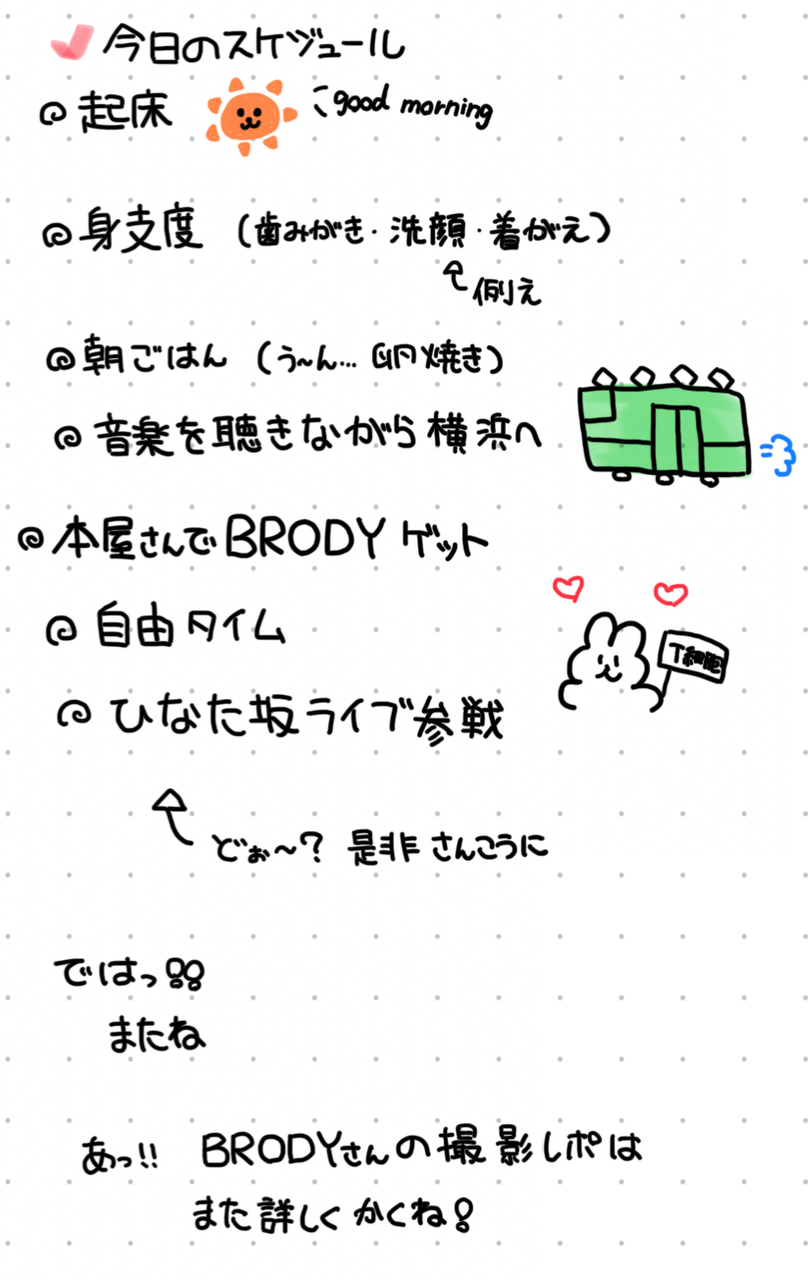 今日のスケジュール
起床 good morning
身支度 (歯みがき・洗顔・着がえ)
例え
朝ごはん (う〜ん… 卵焼き)
音楽を聴きながら横浜へ
本屋さんでBRODY ゲット
自由タイム
T細胞
ひなた坂ライブ参戦
どぉ〜? 是非 さんこうに
ではっ!!
またね
あっ!! BRODYさんの撮影レポは
また詳しくかくね!